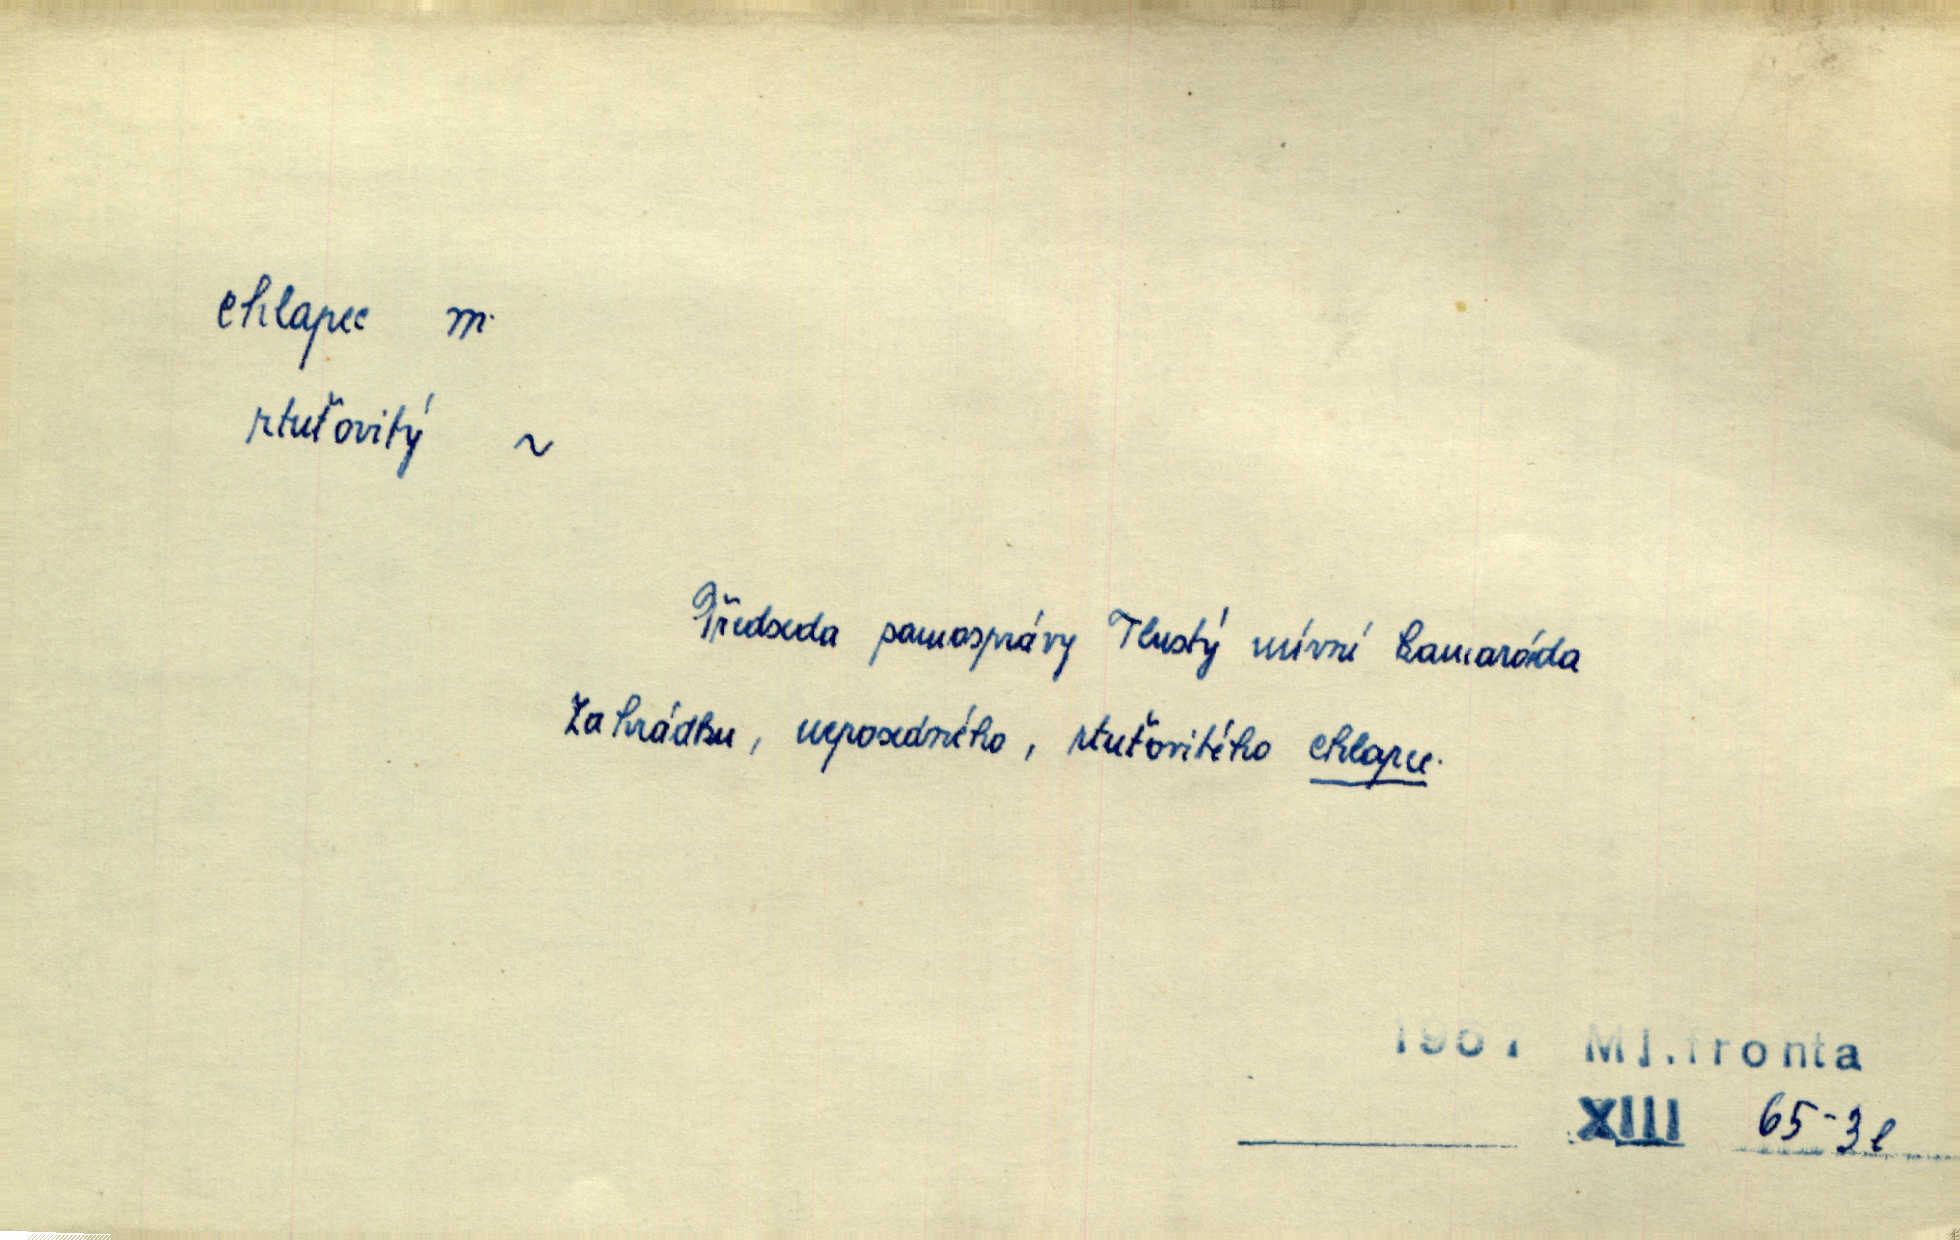 chlapec m.
rtuťovitý ~
Předseda samosprávy Tlustý mírní kamaráda
Zahrádku, neposedného, rtuťovitého chlapce.
Ml.fronta
XIII 65-3